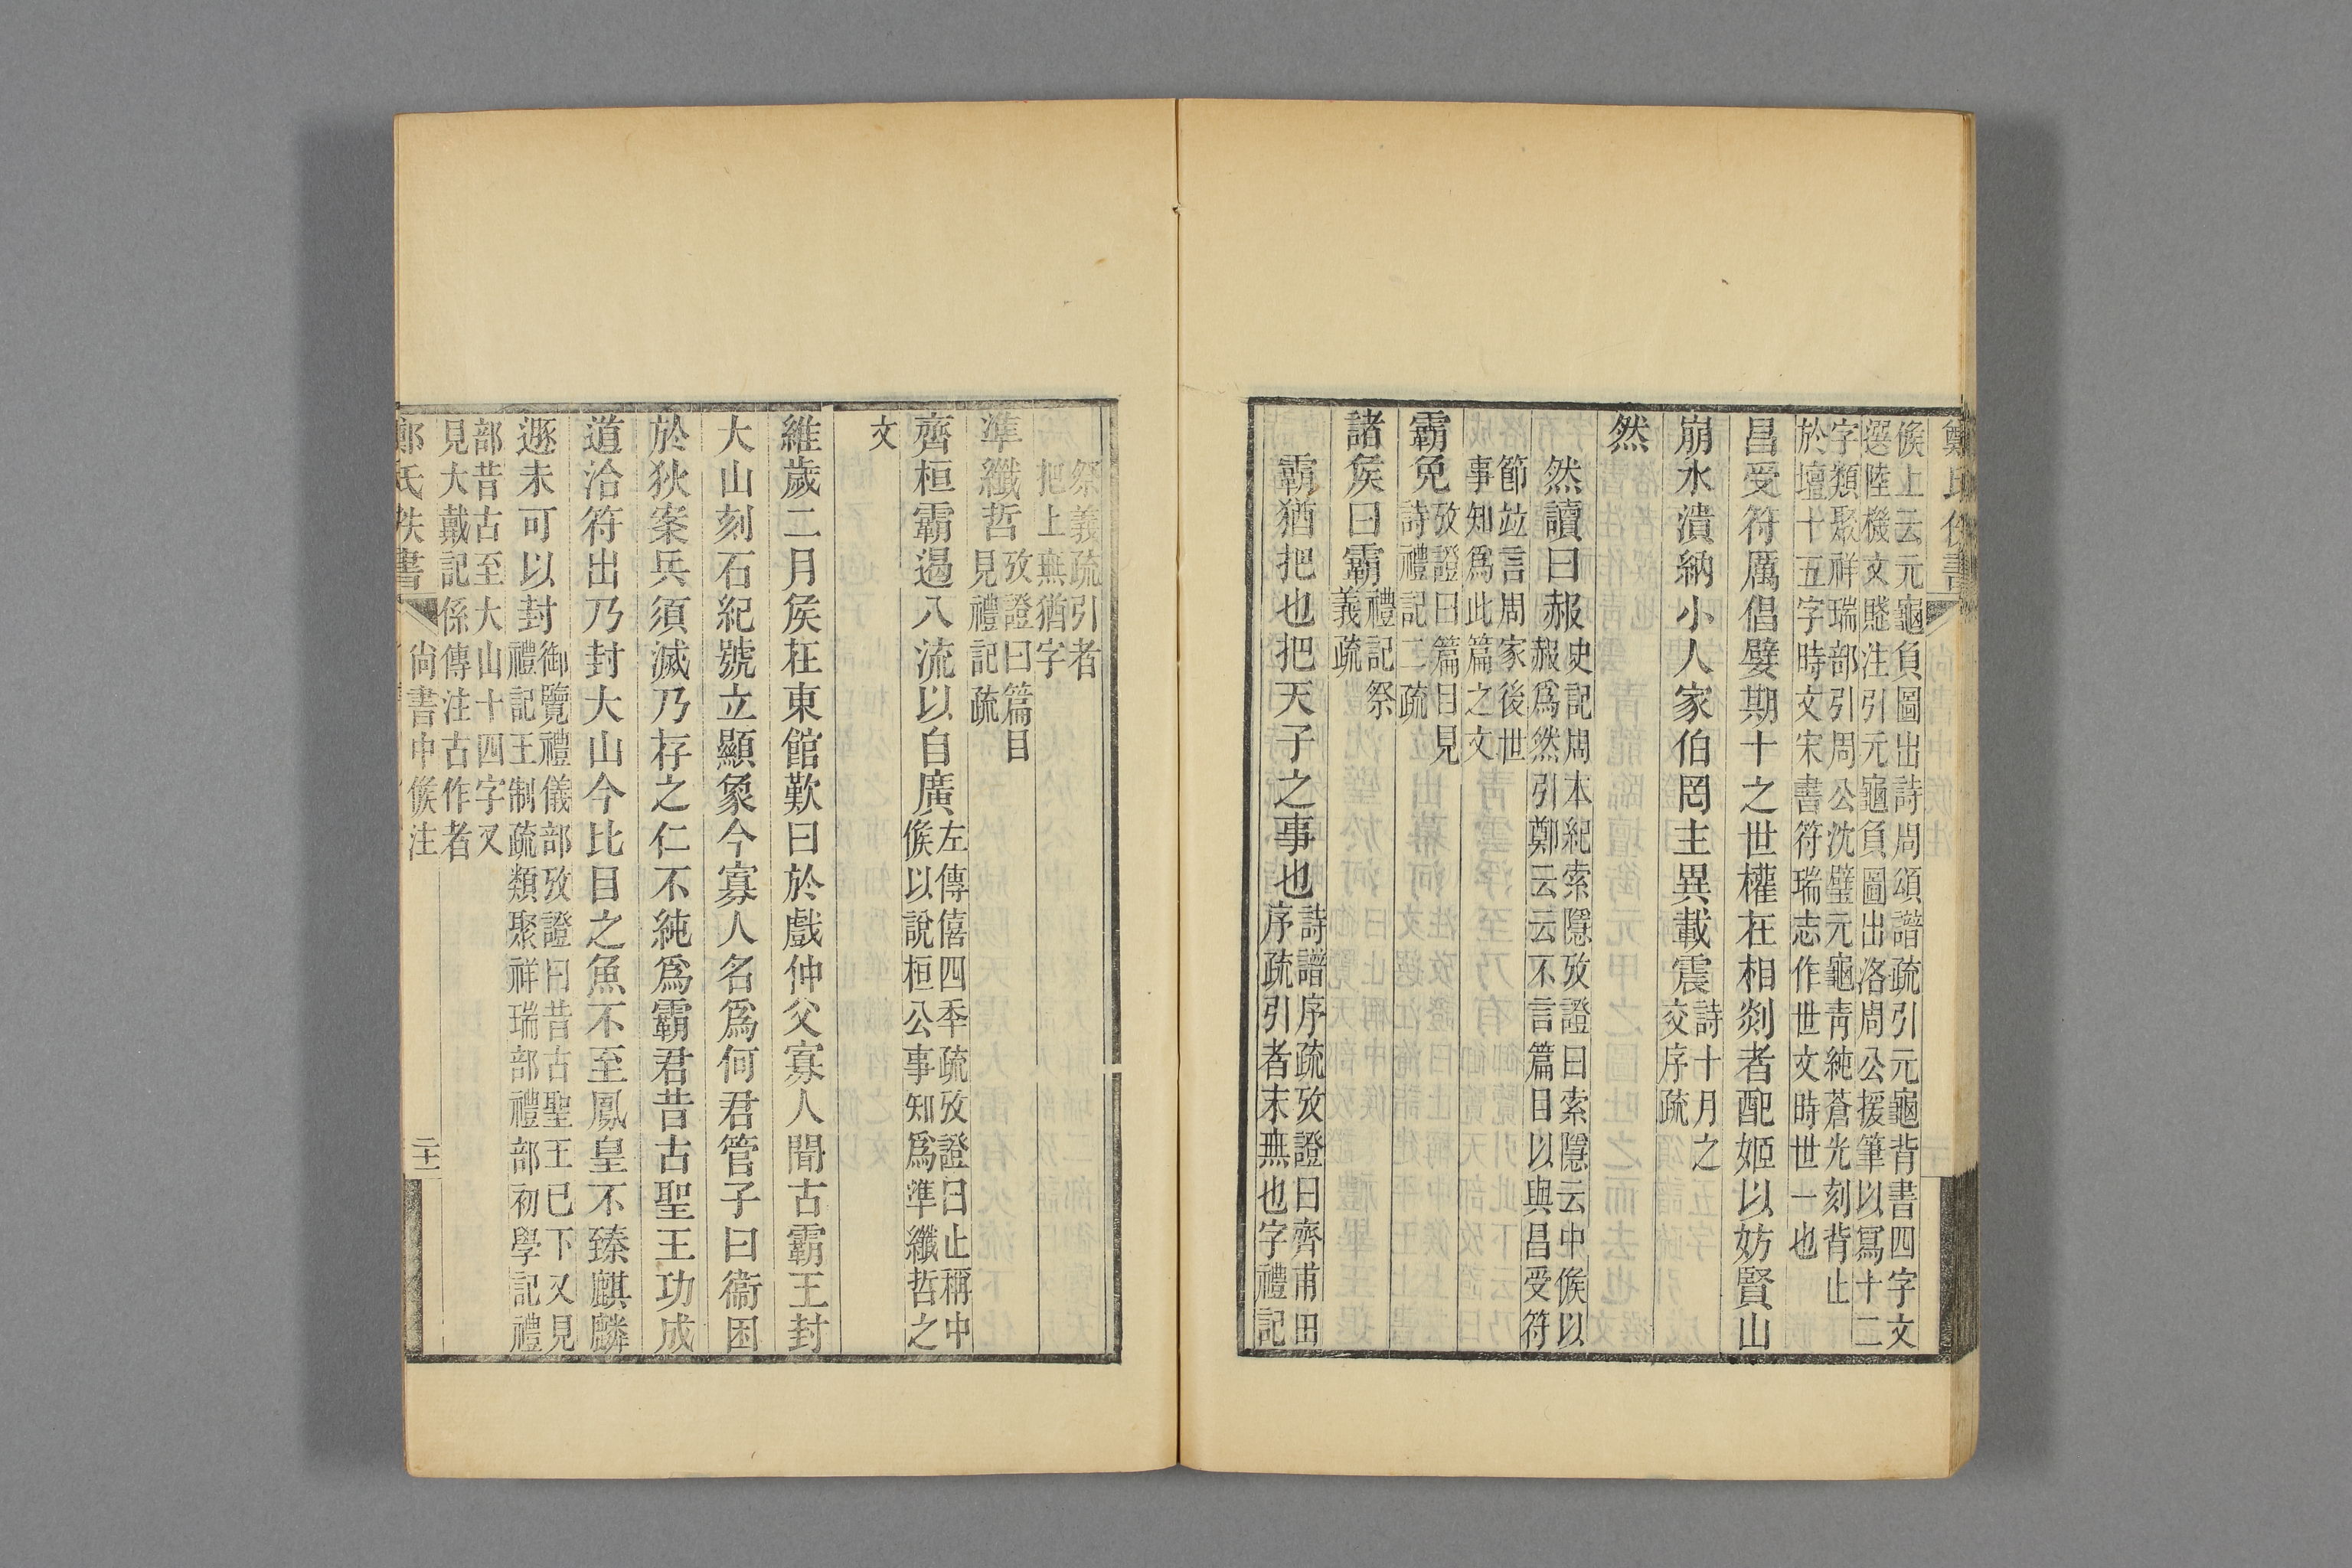 候上云元龜負圖出詩周頌譜疏引元龜背書四字文
選陸機文賤注引元龜負圖出洛周公援筆以寫十二
字類聚祥瑞部引周公沈璧元龜青純蒼光刻背止
於壇十五字時文宋書符瑞志作世文時世一也
昌受符厲倡嬖期十之世權在相剡者配姬以妨賢山
崩水潰納小人家伯罔主異載震詩十月之
交序疏
然
然讀曰赧史記周本紀索隱攷證曰索隱云中候以
赧爲然引鄭云云不言篇目以與昌受符
節竝言周家後世
事知爲此篇之文
霸免攷證曰篇目見
詩禮記二疏
諸矦曰霸禮記祭
義疏
霸猶把也把天子之事也詩譜序疏攷證曰齊甫田
序疏引者末無也字禮記
祭義疏引者
把上無猶字
準纖哲攷證曰篇目
見禮記疏
齊桓霸遏八流以自廣左傳僖四年疏攷證曰止稱中
候以說桓公事知爲準纖哲之
文
維歲二月矦在東館歎曰於戲仲父寡人聞古霸王封
大山刻石紀號立顯象今寡人名爲何君管子曰衞困
於狄案兵須滅乃存之仁不純爲霸君昔古聖王功成
道洽符出乃封大山今比目之魚不至鳳皇不臻麒麟
遯未可以封御覽禮儀部攷證曰昔古聖王已下又見
禮記王制疏類聚祥瑞部禮部初學記禮
部昔古至大山十四字又
見大戴記係傳注古作者
鄭氏佚書
尚書中候注
二十一